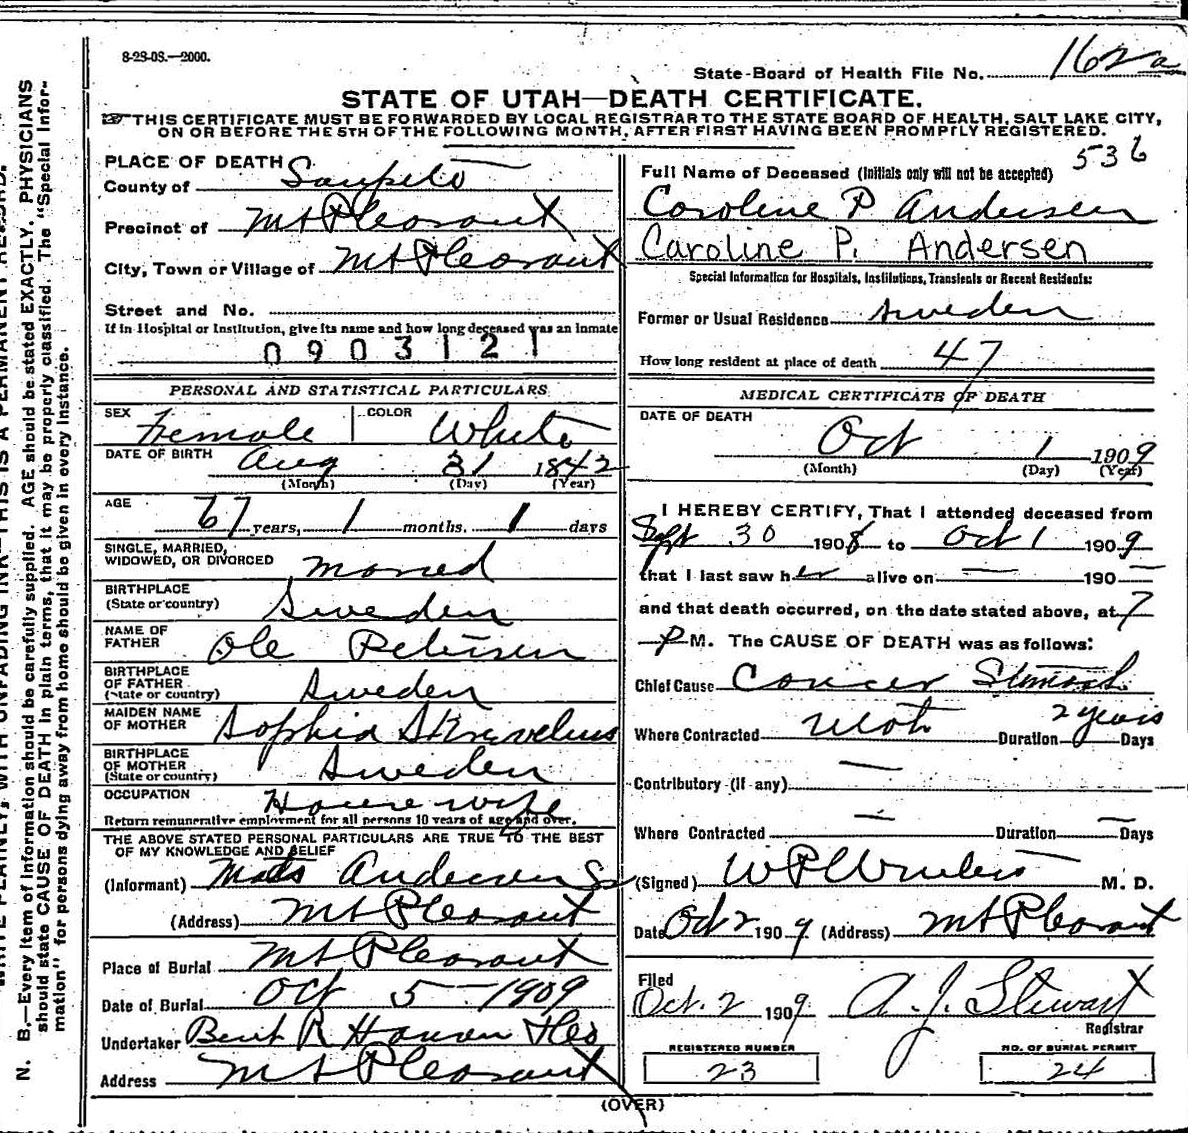 8-28-08.—2000.
State Board of Health File No. 162 a
STATE OF UTAH—DEATH CERTIFICATE.
THIS CERTIFICATE MUST BE FORWARDED BY LOCAL REGISTRAR TO THE STATE BOARD OF HEALTH, SALT LAKE CITY,
ON OR BEFORE THE 5TH OF THE FOLLOWING MONTH, AFTER FIRST HAVING BEEN PROMPTLY REGISTERED.
PLACE OF DEATH
County of Sanpete
Precinct of Mt Pleasant
City, Town or Village of Mt Pleasant
Street and No.
If in Hospital or Institution, give its name and how long deceased was an inmate
0903121
PERSONAL AND STATISTICAL PARTICULARS
SEX Female COLOR White
DATE OF BIRTH Aug 31 1842
(Month) (Day) (Year)
AGE 67 years, 1 months, 1 days
SINGLE, MARRIED,
WIDOWED, OR DIVORCED Maried
BIRTHPLACE
(State or country) Sweden
NAME OF
FATHER Ole Petersen
BIRTHPLACE
OF FATHER
(State or country) Sweden
MAIDEN NAME
OF MOTHER Sophia
BIRTHPLACE
OF MOTHER
(State or country) Sweden
OCCUPATION House wife
Return remunerative employment for all persons 10 years of age and over.
THE ABOVE STATED PERSONAL PARTICULARS ARE TRUE TO THE BEST
OF MY KNOWLEDGE AND BELIEF
(Informant) Mats Andersen Sr
(Address) Mt Pleasant
Place of Burial Mt Pleasant
Date of Burial Oct 5 1909
Undertaker Bent R Hansen
Address Mt Pleasant
536
Full Name of Deceased (Initials only will not be accepted)
Caroline P Andersen
Caroline P. Andersen
Special Information for Hospitals, Institutions, Transients or Recent Residents:
Former or Usual Residence Sweden
How long resident at place of death 47
MEDICAL CERTIFICATE OF DEATH
DATE OF DEATH
Oct 1 1909
(Month) (Day) (Year)
I HEREBY CERTIFY, That I attended deceased from
Sept 30 1908 to Oct 1 1909
that I last saw her alive on — 190 —
and that death occurred, on the date stated above, at 7
P M. The CAUSE OF DEATH was as follows:
Chief Cause Cancer Stomach
Where Contracted Utah Duration 2 years Days
Contributory (if any) —
Where Contracted — Duration — Days
(Signed) M. D.
Date Oct 2 1909 (Address) Mt Pleasant
Filed
Oct. 2 1909 A. J. Stewart
Registrar
REGISTERED NUMBER
23
NO. OF BURIAL PERMIT
24
(OVER)
N. B.—Every item of information should be carefully supplied. AGE should be stated EXACTLY. PHYSICIANS
should state CAUSE OF DEATH in plain terms, that it may be properly classified. The "Special Infor-
mation" for persons dying away from home should be given in every instance.